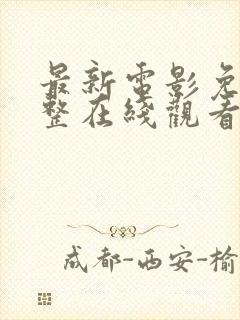 最新電影免
整在綫觀看
成都-西安-榆